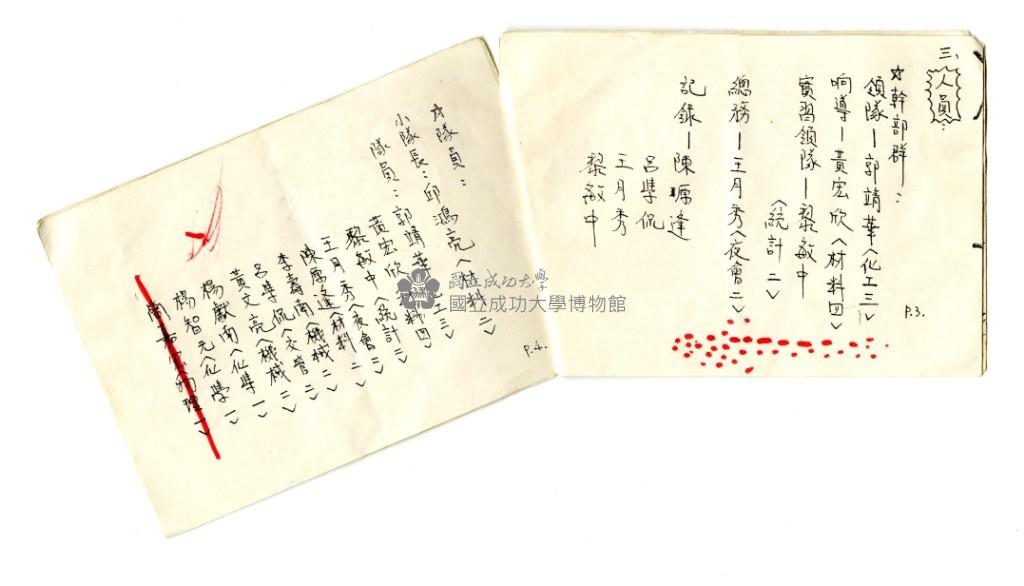 三、人員：
☆幹部群：
領隊－郭靖華〈化工三〉
响導－黃宏欣〈材料四〉
實習領隊－黎敏中
〈統計二〉
總務－王月秀〈夜會二〉
記錄－陳塬逢
呂學侃
王月秀
黎敏中
P.3.
☆隊員：
小隊長：邱鴻亮〈材料二〉
隊員：郭靖華〈化工三〉
黃宏欣〈材料四〉
黎敏中〈統計二〉
王月秀〈夜會二〉
陳塬逢〈材料二〉
李壽南〈機械二〉
呂學侃〈交管二〉
黃文亮〈機械二〉
楊獻南〈化學一〉
楊智元〈化學一〉
P.4.
國立成功大學
國立成功大學博物館